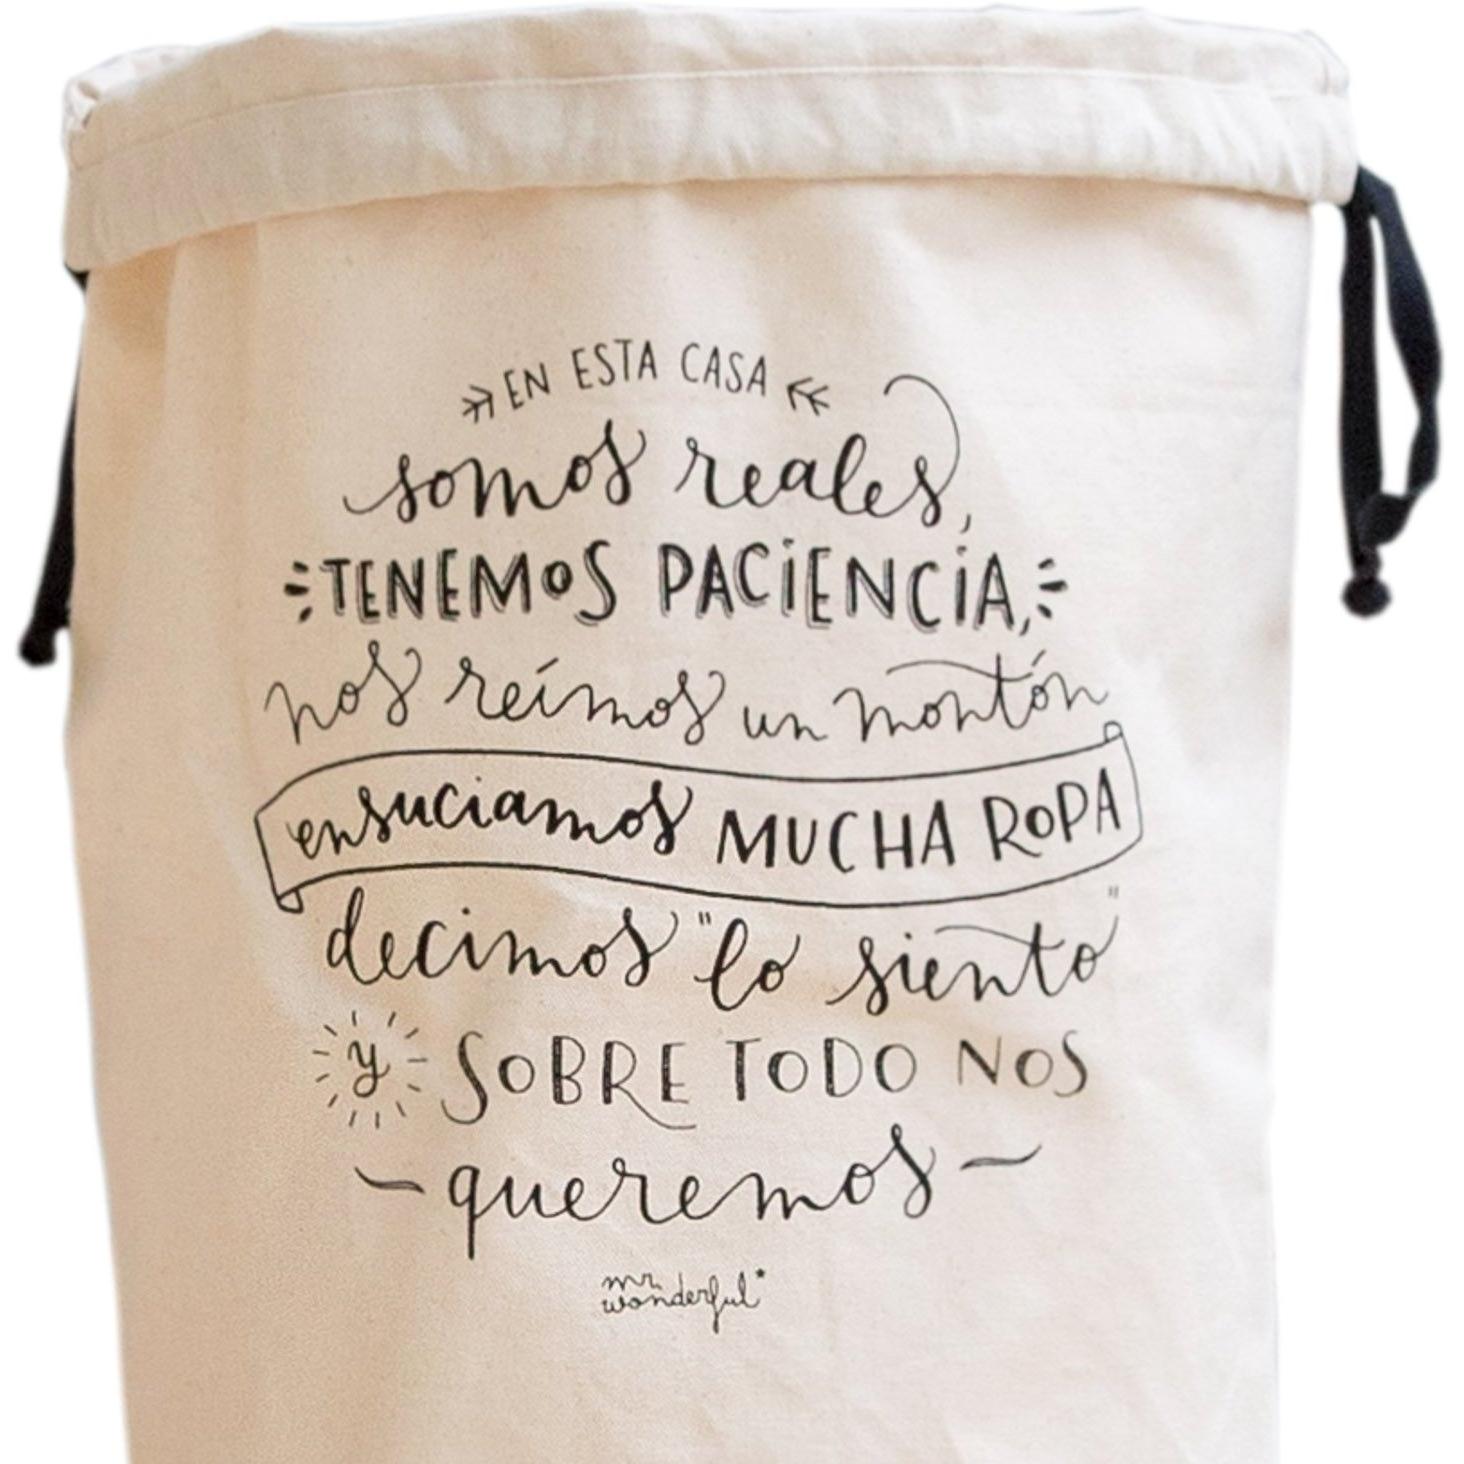 EN ESTA CASA
somos reales,
TENEMOS PACIENCIA,
nos reímos un montón
ensuciamos MUCHA ROPA
decimos "lo siento"
y SOBRE TODO NOS
queremos
mr.
wonderful*